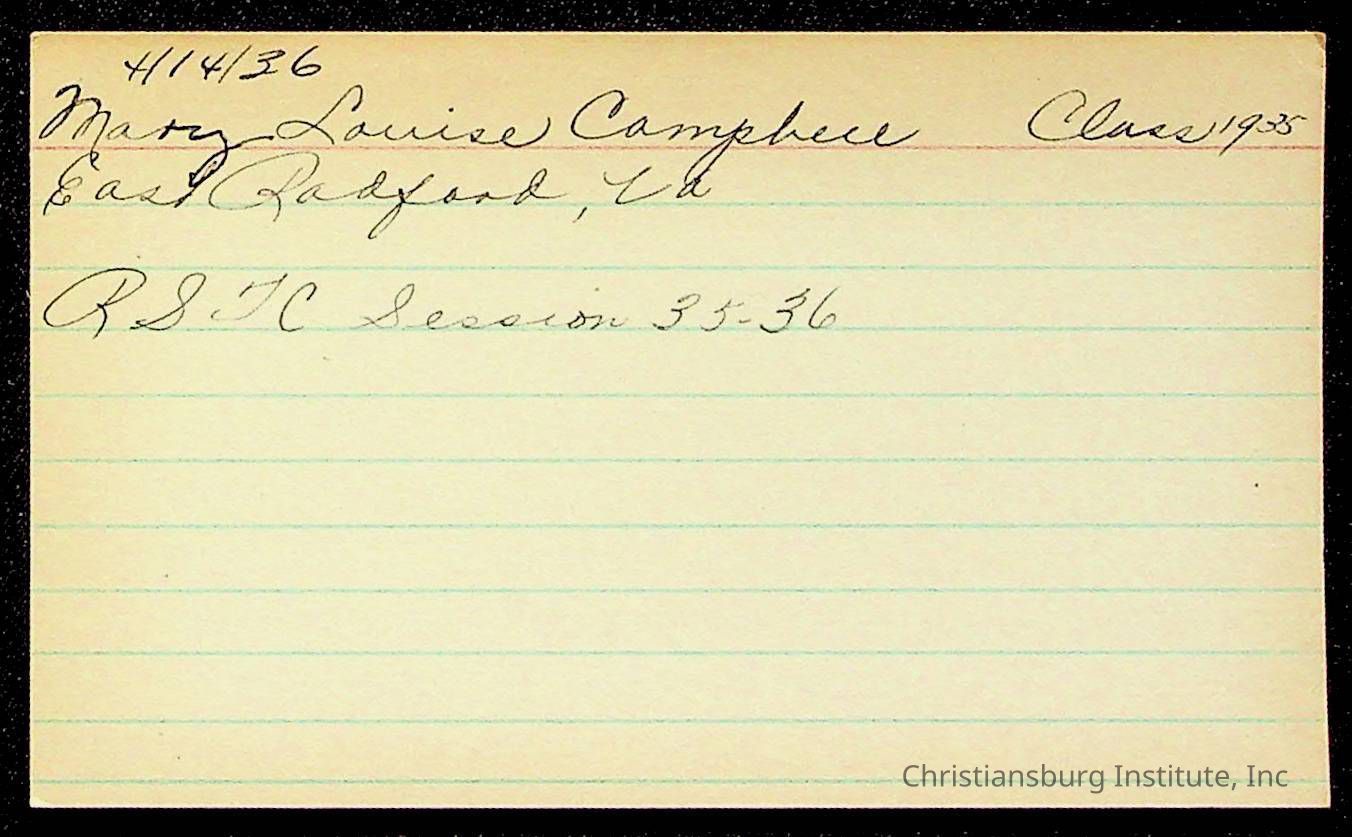 4/14/36
Mary Louise Campbell Class 1935
East Radford, Va
R S T C Session 35-36
Christiansburg Institute, Inc